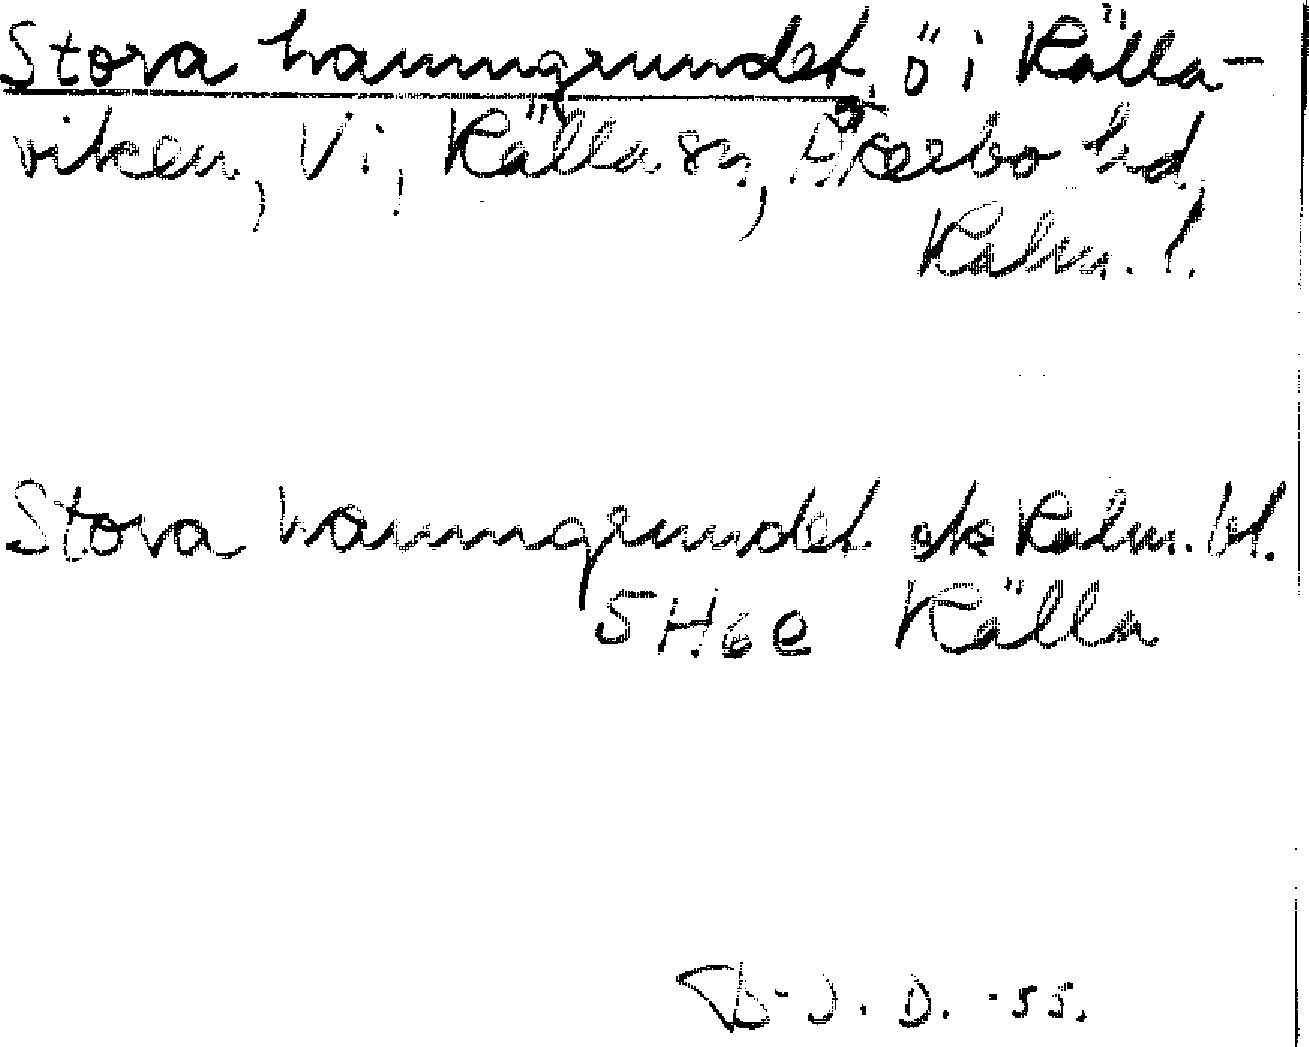 Stora hamngrundet, ö i Källa-
viken, V i, Källa sn, Åkerbo hd,
Kalm. l.
Stora hamngrundet ek Kalm. bl.
5H6e Källa
B-J. D. -55.